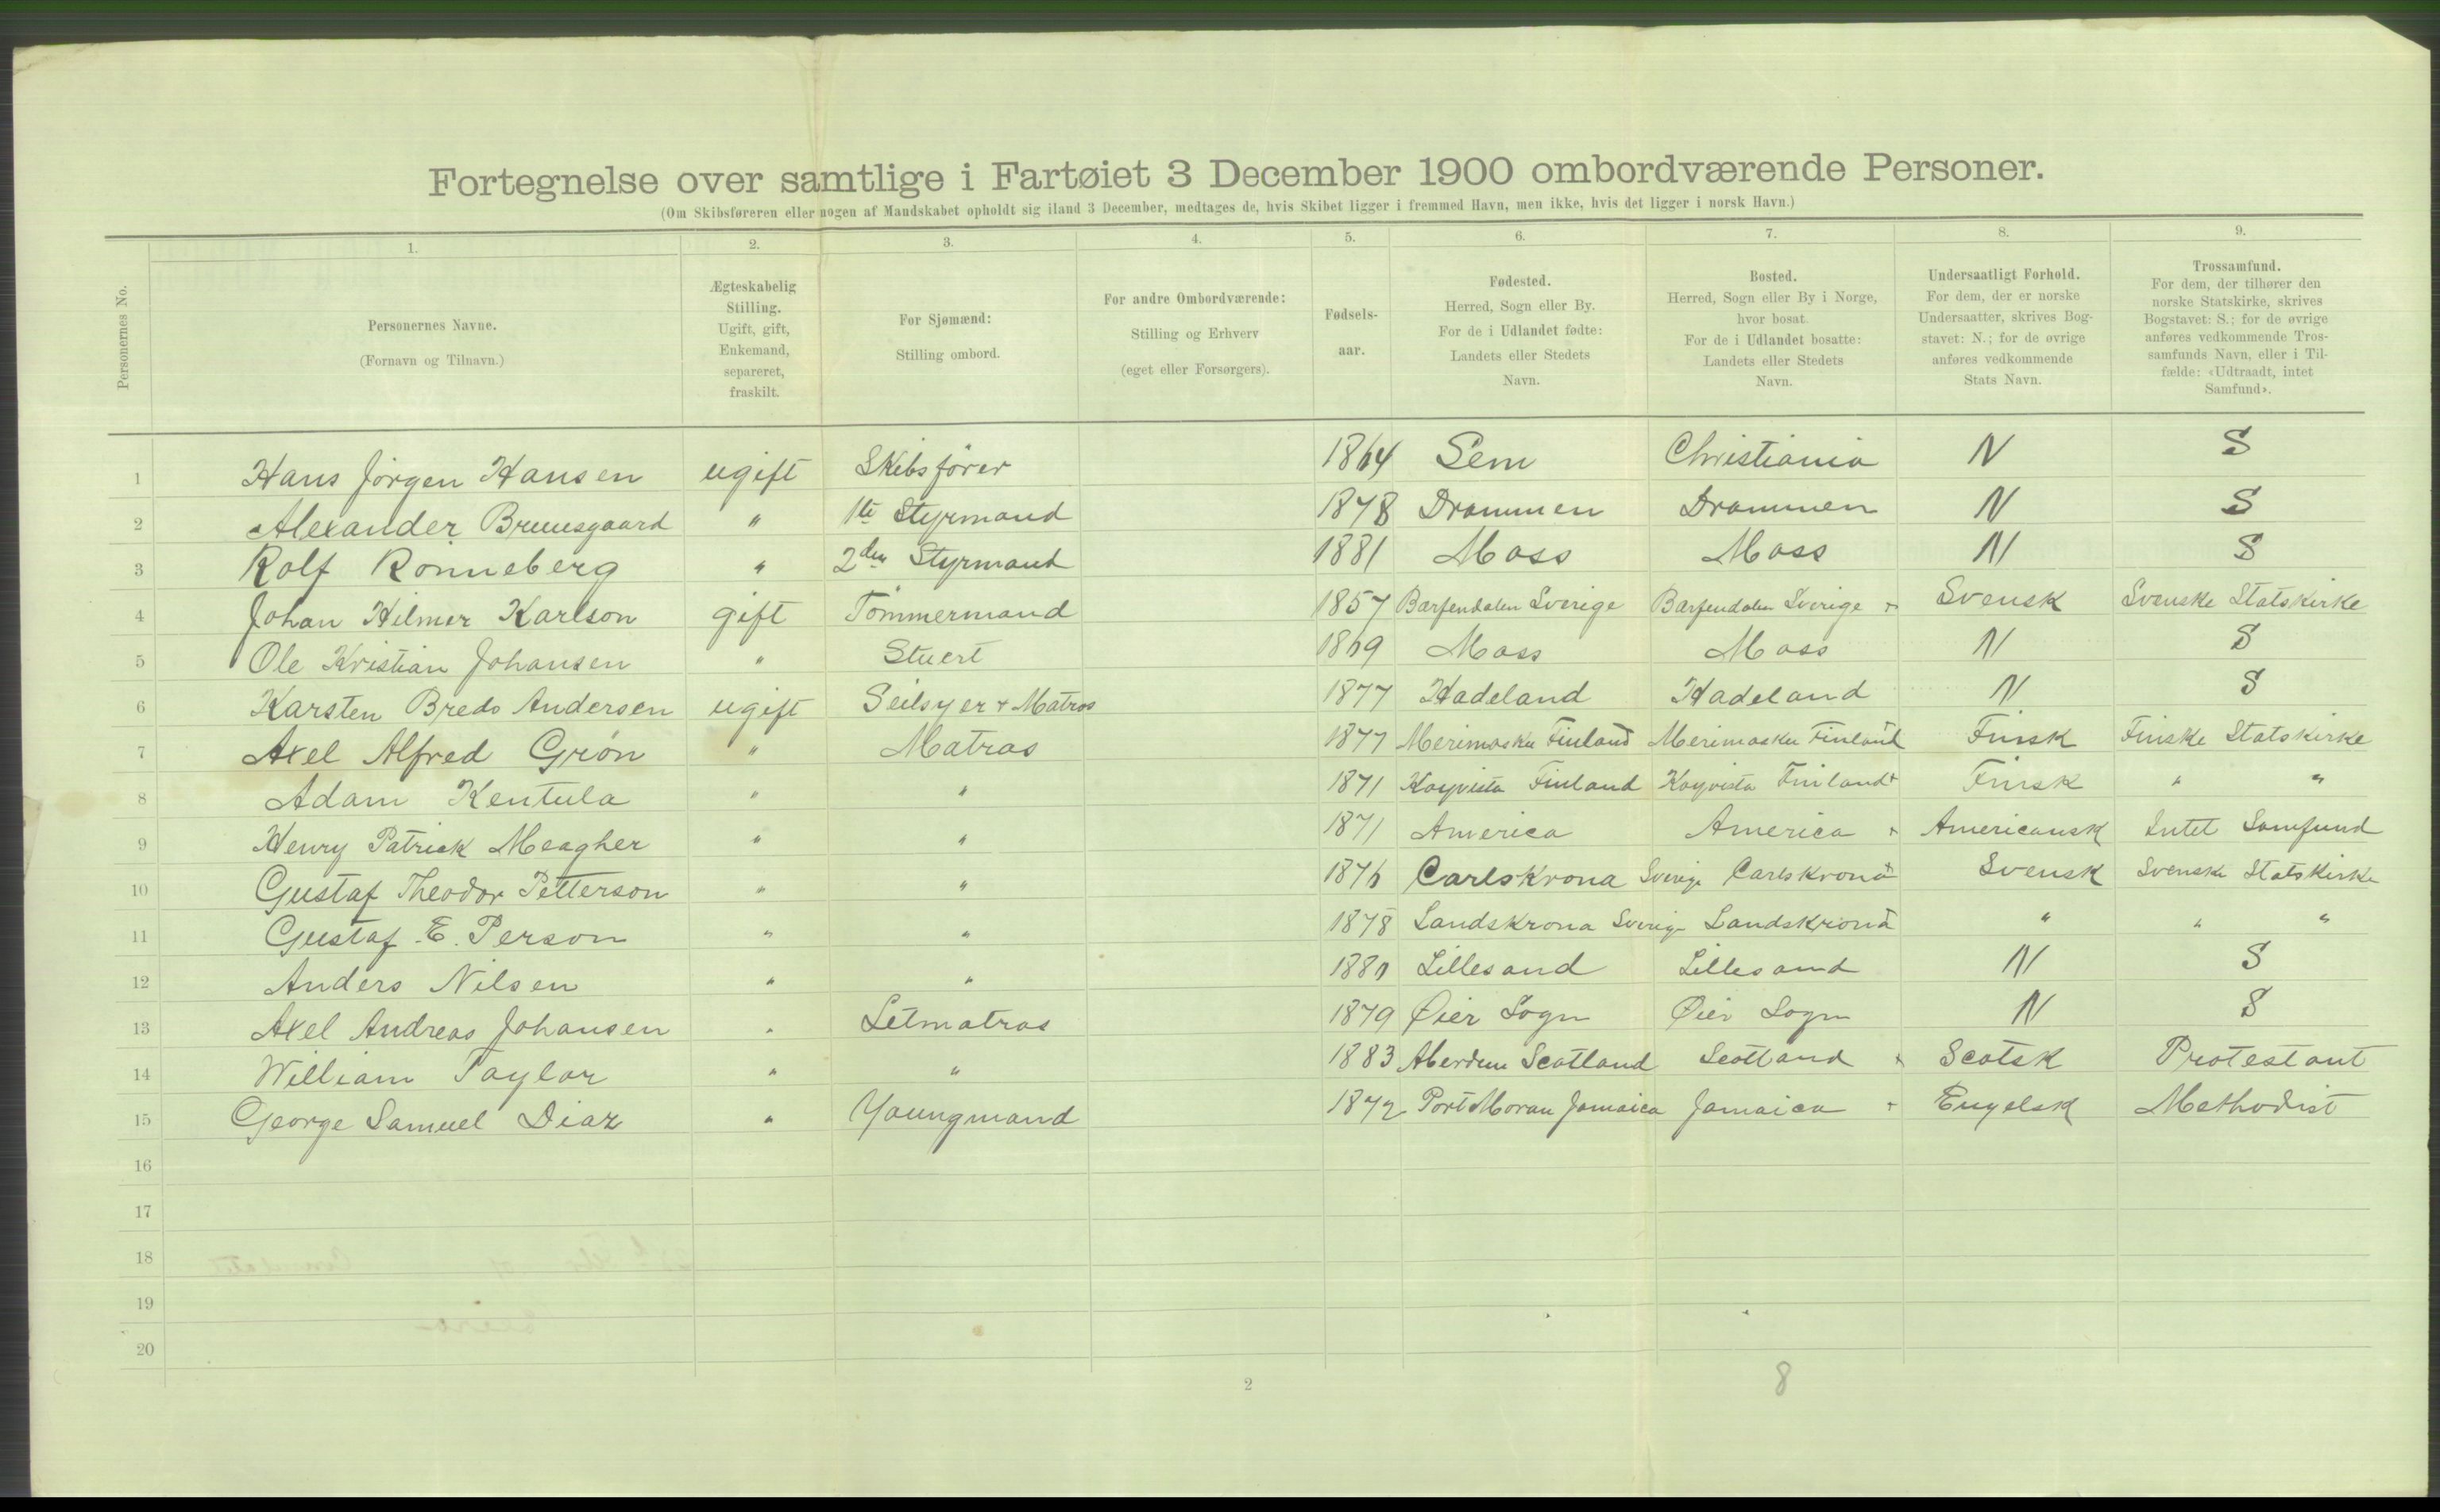 Fortegnelse over samtlige i Fartøiet 3 December 1900 ombordværende Personer.
(Om Skibsføreren eller nogen af Mandskabet opholdt sig iland 3 December, medtages de, hvis Skibet ligger i fremmed Havn, men ikke, hvis det ligger i norsk Havn.)
1. 2. 3. 4. 5. 6. 7. 8. 9.
Personernes No.
Personernes Navne.
(Fornavn og Tilnavn.)
Ægteskabelig
Stilling.
Ugift, gift,
Enkemand,
separeret,
fraskilt.
For Sjømænd:
Stilling ombord.
For andre Ombordværende:
Stilling og Erhverv
(eget eller Forsørgers).
Fødsels-
aar.
Fødested.
Herred, Sogn eller By.
For de i Udlandet fødte:
Landets eller Stedets
Navn.
Bosted.
Herred, Sogn eller By i Norge,
hvor bosat.
For de i Udlandet bosatte:
Landets eller Stedets
Navn.
Undersaatligt Forhold.
For dem, der er norske
Undersaatter, skrives Bog-
stavet: N.; for de øvrige
anføres vedkommende
Stats Navn.
Trossamfund.
For dem, der tilhører den
norske Statskirke, skrives
Bogstavet: S.; for de øvrige
anføres vedkommende Tros-
samfunds Navn, eller i Til-
fælde: «Udtraadt, intet
Samfund».
1 Hans Jörgen Hansen ugift Skibsförer 1864 Sem Christiania N S
2 Alexander Bruusgaard " 1ste Styrmand 1878 Drammen Drammen N S
3 Rolf Rönneberg " 2den Styrmand 1881 Moss Moss N S
4 Johan Hilmer Karlson gift Tömmermand 1857 Barfendalen Sverige Barfendalen Sverige + Svensk Svenske Statskirke
5 Ole Kristian Johansen " Stuert 1869 Moss Moss N S
6 Karsten Bredo Andersen ugift Seilsyer + Matros 1877 Hadeland Hadeland N S
7 Axel Alfred Grön " Matros 1877 Merimasku Finland Merimasku Finland + Finsk Finske Statskirke
8 Adam Kentula " " 1871 Koyvista Finland Koyvista Finland + Finsk " "
9 Henry Patrick Meagher " " 1871 America America + Americansk Intet Samfund
10 Gustaf Theodor Petterson " " 1876 Carlskrona Sverige Carlskrona + Svensk Svenske Statskirke
11 Gustaf E. Person " " 1878 Landskrona Sverig Landskrona + " " "
12 Anders Nilsen " " 1880 Lillesand Lillesand N S
13 Axel Andreas Johansen " Letmatros 1879 Øier Sogn Øier Sogn N S
14 William Taylor " " 1883 Aberdeen Scotland Scotland + Scotsk Protestant
15 George Samuel Diaz " Youngmand 1872 Port Moran Jamaica Jamaica + Engelsk Methodist
16
17
18
19
20
2
8